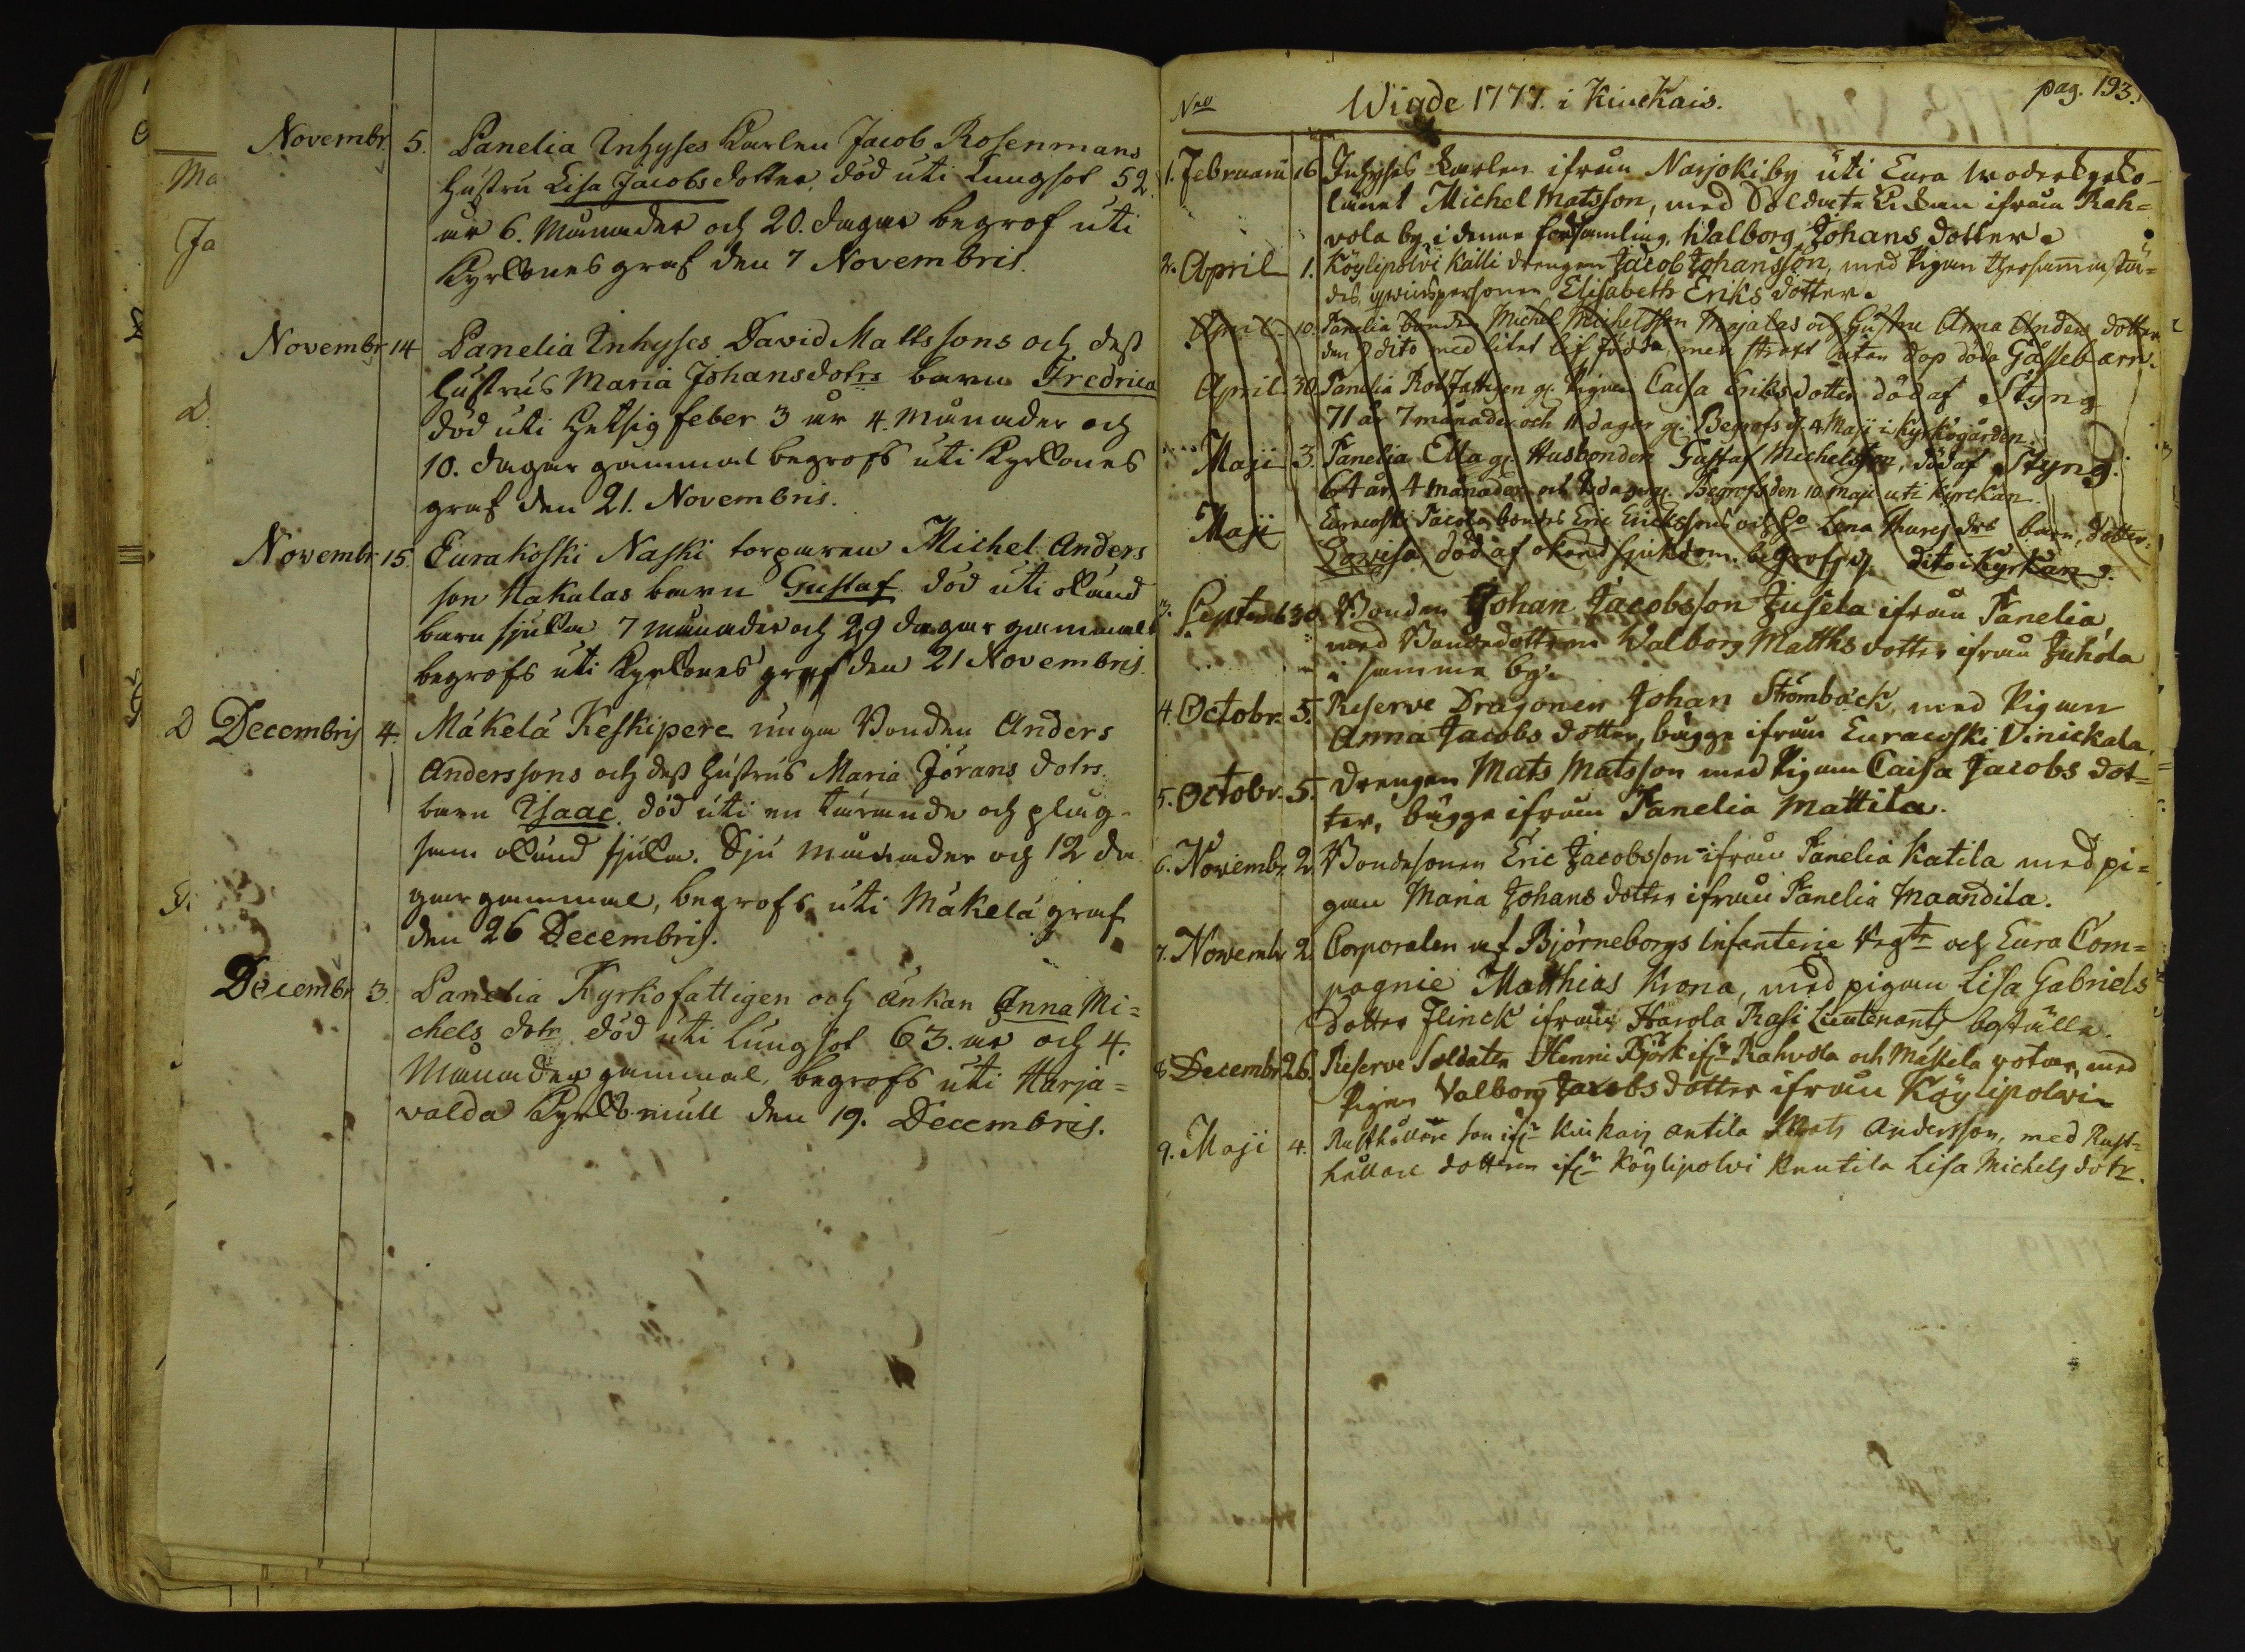 Novembr. 5. Panelia Inhyses Karlen Jacob Rosenmans
hustru Lisa Jacobsdotter, död uti Lungsot 52
år 6. Månader och 20. dagar begrof uti
Kyrkones graf den 7 Novembris.
Novembr 14 Panelia Inhyses David Mattssons och dess
hustrus Maria Johansdotrs barn Fredrica
död uti hetsig feber 3 år 4. Månader och
10. dagar gammal begrofs uti Kyrkones
graf den 21. Novembris.
Novembr 15. Eurakoski Naski torparen Michel Anders
son Hakalas barn Gustaf död uti okänd
barn sjuka 7 månader och 29 dagar gammalt
begrofs uti Kyrkones graf den 21 Novembris.
Decembris 4. Mäkelä Keskipere unga Bonden Anders
Anderssons och dess hustrus Maria Jörans dotrs
barn Isaac. död uti en tärande och plåg-
sam okänd sjuka. Sju månader och 12 da
gar gammal, begrofs uti Mäkelä graf
den 26 Decembris.
Decembr 3. Panelia Kyrkofattigen och Änkan Anna Mi=
chels dotr död uti Lungsot 63. år och 4.
Månader gammal, begrofs uti Harja=
valda Kyrko mull den 19. Decembris.
Nro Wigde 1777. i Kiuckais. pag. 193.
1. Februarii 16 Inhyses Karlen ifrån Narjoki by uti Eura moderkyrko-
länet Michel Matsson, med Soldate Enkan ifrån Rah=
vola by i denne församling, Walborg Johans dotter.
2. April 1. Köylipolvi Kalli drengen Jacob Johansson, med Pigan thersammastä=
des, qwinspersonen Elisabeth Eriks dotter.
April 10. Panelia bonden Michel Michelsson Majalas och hustru Anna Anders dotter
den 9 dito med litet lif födda, men strax utan dop döda Gåssebarn.
April 30. Panelia Rotfattigen gl. Pigan Caisa Eriksdotter död af Styng
71 år 7 månader och 11 dagar gl. Begrofs d. 4 Maji i Kyrkogården.
Maji 3. Panelia Ella gl. Husbonden Gustaf Michelsson, död af Styng.
64 år, 4 månader och dagar gl. Begrofs den 10 maji uti Kyrckan.
Maji Euracoski Jacola bondes Eric Erickssons och ho Lena Thures drs barn, dotter:
Lovisa, död af okänd sjukdom. begrofs d. dito i Kyrkan.
3. Septemb 30. Bonden Johan Jacobsson Jusela ifrån Panelia
med Bondedottern Walborg Matths dotter ifrån Juhola
i samma by.
4. Octobr. 5. Reserve Dragonen Johan Strömbäck, med Pigan
Anna Jacobs dotter, bägge ifrån Euracoski Vinickala.
5. Octobr. 5. Drengen Mats Matsson med Pigan Caisa Jacobs dot=
ter, bägge ifrån Panelia Mattila.
6. Novembr. 2. Bondesonen Eric Jacobsson ifrån Panelia Katila med pi=
gan Maria Johans dotter ifrån Panelia Maandila.
7. Novembr 2. Corporalen af Björneborgs Infanterie Regte och Eura Com=
pagnie Matthias Krona, med pigan Lisa Gabriels
dotter Flinck ifrån Harola Rasi Lieutenants boställe.
8 Decembr 26. Reserve Soldaten Henric Björk ifr Rahvola och Mäkela rotar, med
Pigan Valborg Jacobs dotter ifrån Köylipolvi
9. Maji 4. Rusthållare son ifr Kiukais antila Mats Andersson, med Rust=
hållare dottren ifr Köylipolvi Knutila Lisa Michels dotr.